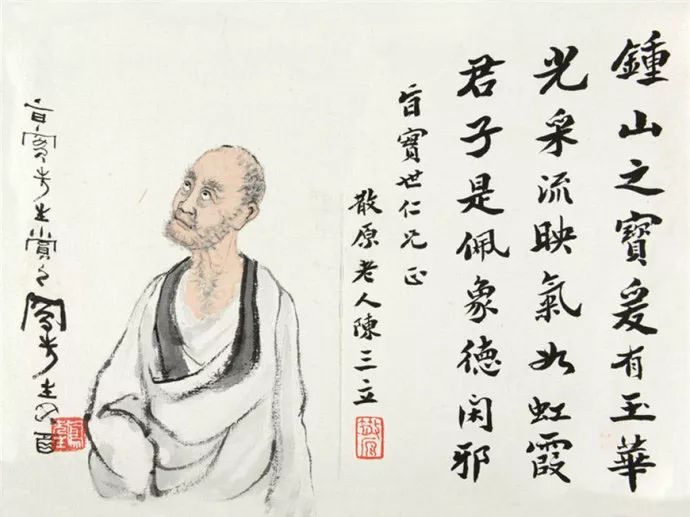 鍾山之寶爰有玉華
光采流映氣如虹霞
君子是佩象德閑邪
旨寶世仁兄正
散原老人陳三立
散原
先生賞之